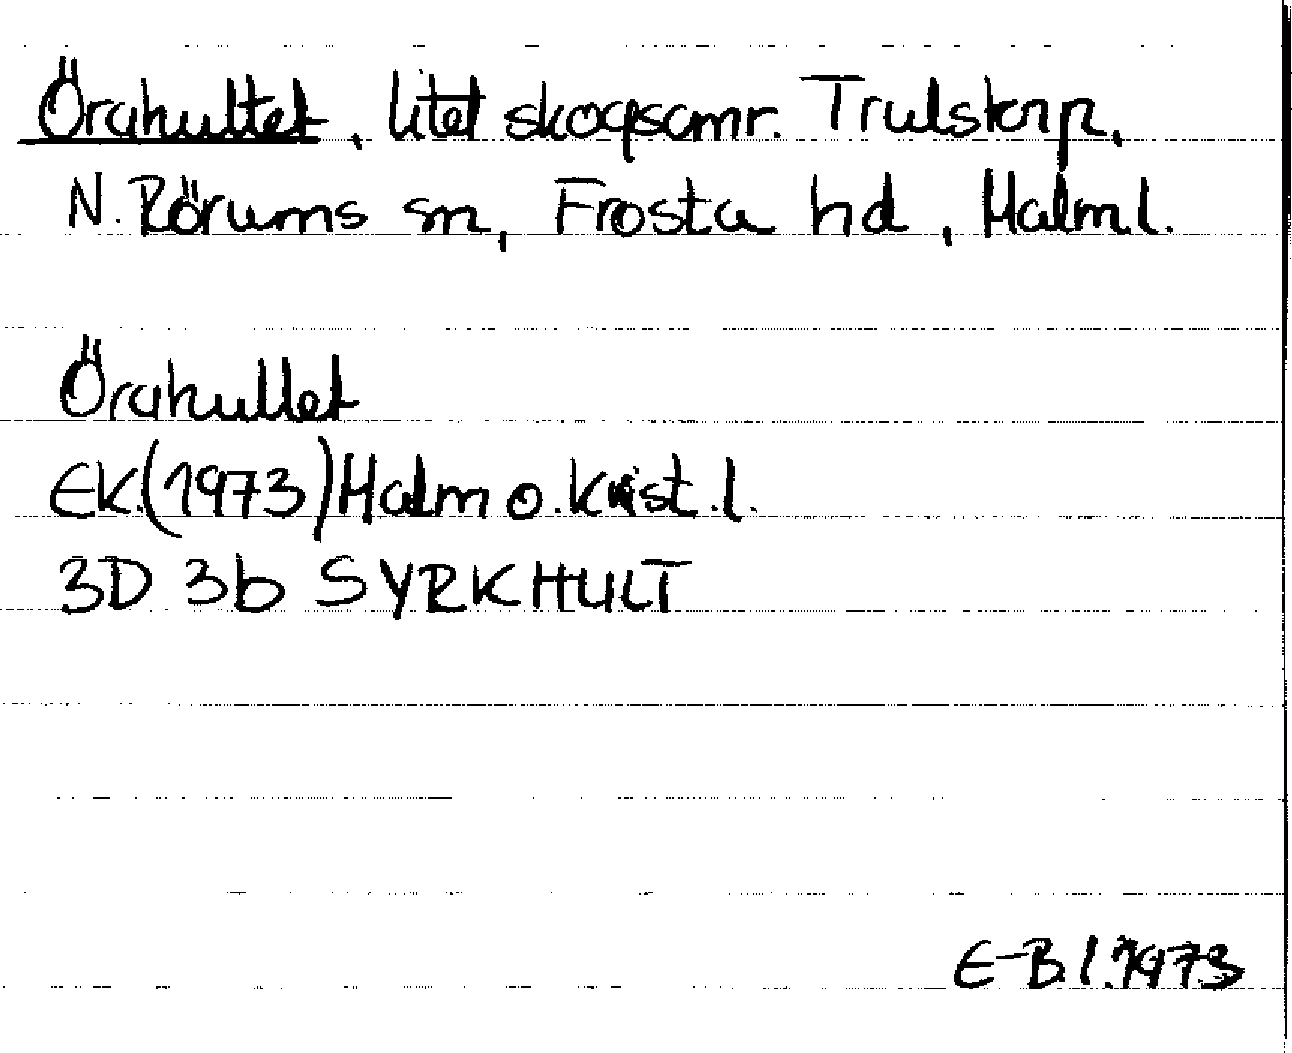 Örahultet, litet skogsomr. Trulstorp,
N. Rörums sn, Frosta hd, Malm.l.
Örahultet
EK.(1973) Malm o. Krist. l.
3D 3b SYRKHULT
E-B l. 1973